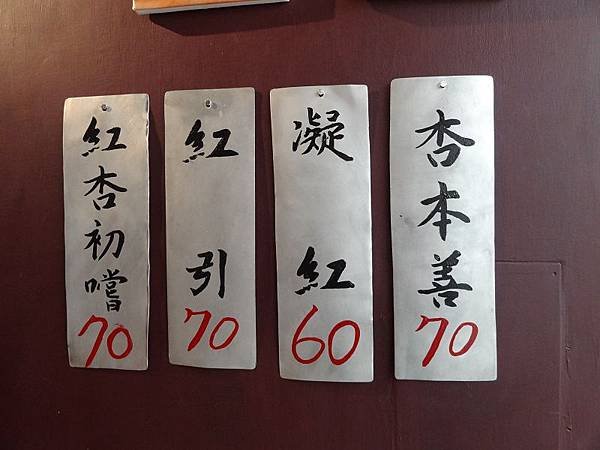 杏本善
70
凝紅
60
紅引
70
紅杏初嚐
70